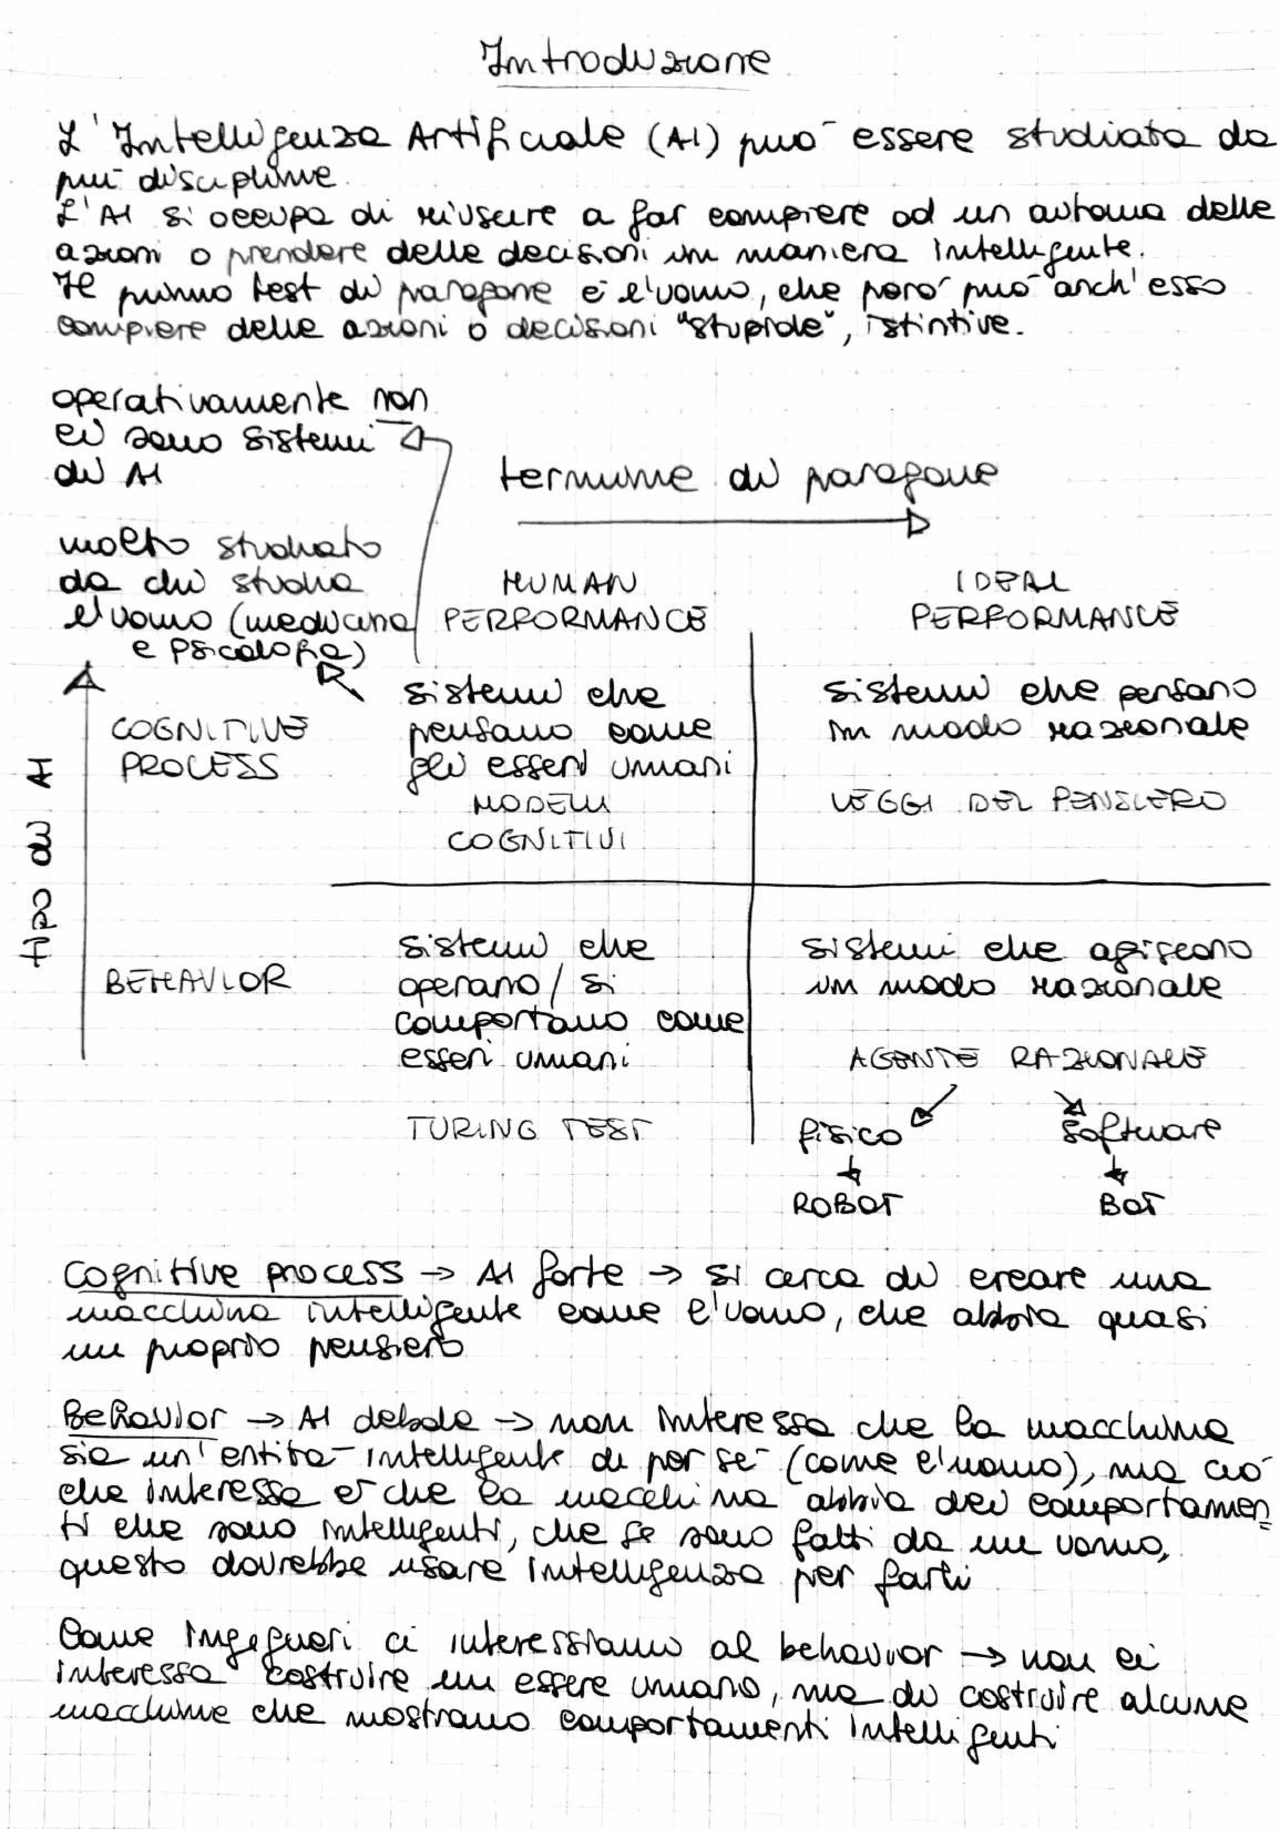 Introduzione
L'Intelligenza Artificiale (AI) può essere studiata da
più discipline.
L'AI si occupa di riuscire a far compiere ad un automa delle
azioni o prendere delle decisioni in maniera intelligente.
Il primo test di paragone è l'uomo, che però può anch'esso
compiere delle azioni o decisioni "stupide", istintive.
operativamente non
ci sono sistemi
di AI
termine di paragone
molto studiato
da chi studia
l'uomo (medicina
e psicologia)
HUMAN
PERFORMANCE
IDEAL
PERFORMANCE
tipo di AI
COGNITIVE
PROCESS
sistemi che
pensano come
gli esseri umani
MODELLI
COGNITIVI
sistemi che pensano
in modo razionale
LEGGI DEL PENSIERO
BEHAVIOR
sistemi che
operano / si
comportano come
esseri umani
TURING TEST
sistemi che agiscono
in modo razionale
AGENTE RAZIONALE
fisico
software
ROBOT
BOT
Cognitive process → AI forte → si cerca di creare una
macchina intelligente come l'uomo, che abbia quasi
un proprio pensiero
Behavior → AI debole → non interessa che la macchina
sia un'entità intelligente di per sé (come l'uomo), ma ciò
che interessa è che la macchina abbia dei comportamen=
ti che sono intelligenti, che se sono fatti da un uomo,
questo dovrebbe usare intelligenza per farli
Come ingegneri ci interessiamo al behavior → non ci
interessa costruire un essere umano, ma di costruire alcune
macchine che mostrano comportamenti intelligenti